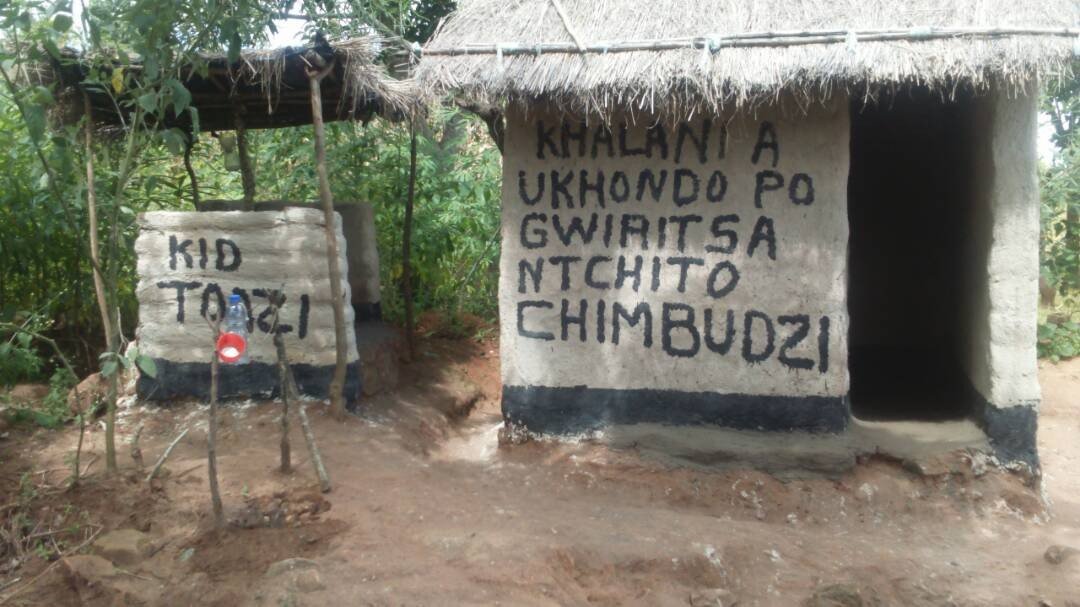 KID
KHALANI A
UKHONDO PO
GWIRITSA
NTCHITO
CHIMBUDZI